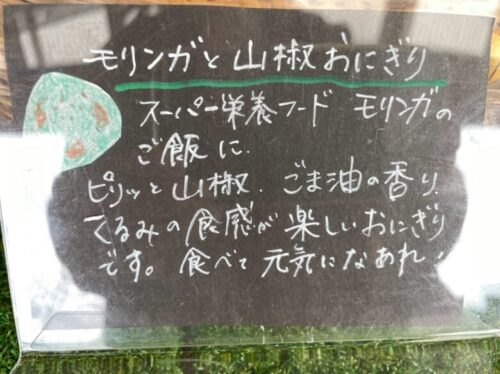 モリンガと山椒おにぎり
スーパー栄養フード モリンガの
ご飯に
ピリッと山椒、ごま油の香り
くるみの食感が楽しいおにぎり
です。食べて元気になあれ!